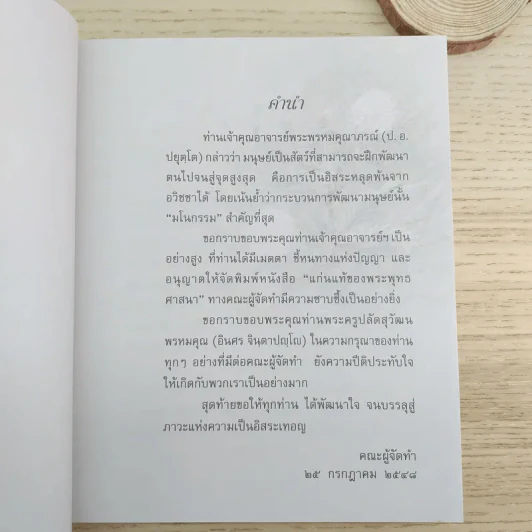 คำนำ
ท่านเจ้าคุณอาจารย์พระพรหมคุณาภรณ์ (ป. อ.
ปยุตฺโต) กล่าวว่า มนุษย์เป็นสัตว์ที่สามารถจะฝึกพัฒนา
ตนไปจนสู่จุดสูงสุด คือการเป็นอิสระหลุดพ้นจาก
อวิชชาได้ โดยเน้นย้ำว่ากระบวนการพัฒนามนุษย์นั้น
“มโนกรรม” สำคัญที่สุด
ขอกราบขอบพระคุณท่านเจ้าคุณอาจารย์ฯ เป็น
อย่างสูง ที่ท่านได้มีเมตตา ชี้หนทางแห่งปัญญา และ
อนุญาตให้จัดพิมพ์หนังสือ “แก่นแท้ของพระพุทธ
ศาสนา” ทางคณะผู้จัดทำมีความซาบซึ้งเป็นอย่างยิ่ง
ขอกราบขอบพระคุณท่านพระครูปลัดสุวัฒน
พรหมคุณ (อินศร จินฺตาปญฺโญ) ในความกรุณาของท่าน
ทุกๆ อย่างที่มีต่อคณะผู้จัดทำ ยังความปีติประทับใจ
ให้เกิดกับพวกเราเป็นอย่างมาก
สุดท้ายขอให้ทุกท่าน ได้พัฒนาใจ จนบรรลุสู่
ภาวะแห่งความเป็นอิสระเทอญ
คณะผู้จัดทำ
๒๕ กรกฎาคม ๒๕๔๘